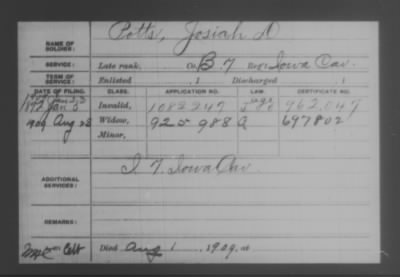 Potts, Josiah D
NAME OF SOLDIER:
SERVICE: Late rank, Co. B. 7 Reg't Iowa Cav.
TERM OF SERVICE: Enlisted , 1 Discharged , 1
DATE OF FILING. CLASS. APPLICATION NO. LAW. CERTIFICATE NO.
Invalid, 1082247 962.047
1909 Aug 28 Widow, 925 988 697802
Minor,
ADDITIONAL SERVICES: I 7. Iowa Cav.
REMARKS:
Died Aug 1, 1909, at